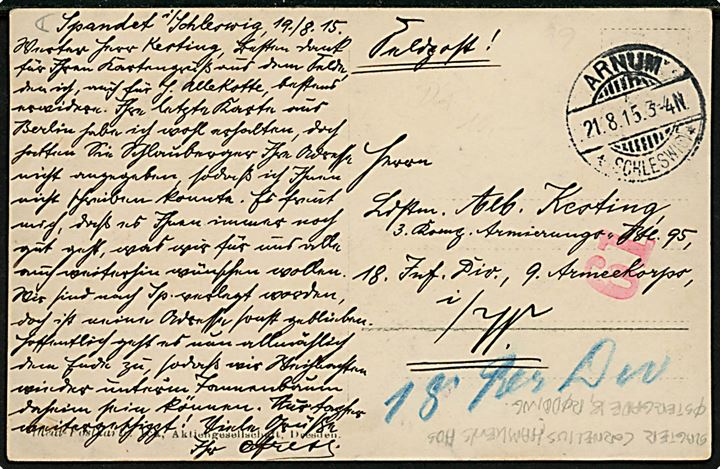 Spandet i/Schleswig, 19./8. 15.
Werter Herr Kesting, Besten Dank
für Ihren Kartengruß aus dem Felde,
den ich, auch für H. Allekotte, bestens
erwidere. Ihre letzte Karte aus
Berlin habe ich wohl erhalten, doch
hatten Sie Schlauberger Ihre Adresse
nicht angegeben, sodaß ich Ihnen
nicht schreiben konnte. Es freut
mich, daß es Ihnen immer noch
gut geht, was wir für uns alle
auch weiterhin wünschen wollen.
Wir sind nach Sp. verlegt worden,
doch ist meine Adresse sonst geblieben.
Hoffentlich geht es nun allmählich
dem Ende zu, sodaß wir Weihnachten
wieder unterm Tannenbaum
daheim sein können. Nur tapfer
weitergehippt! Viele Grüße
Ihr
Aktiengesellschaft, Dresden.
Feldpost!
ARNUM
21.8.15.3-4N.
* (SCHLESWIG) *
Herrn
Ldstm. Alb. Kesting,
3. Komp. Armierungs-Btl. 95,
18. Inf. Div., 9. Armeekorps,
i/W.
61
18 Res Div
SLAGTER CORNELIUS HAMKENS HOS
ØSTERGADE 18, RØDDING